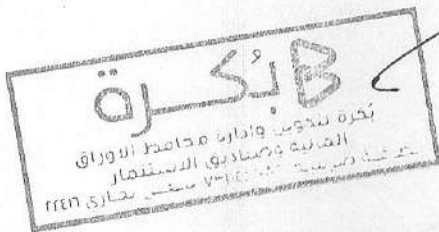 بُكرة B
بُكرة لتكوين وإدارة محافظ الأوراق
المالية وصناديق الاستثمار
سجل تجاري ٢٢٤١٦